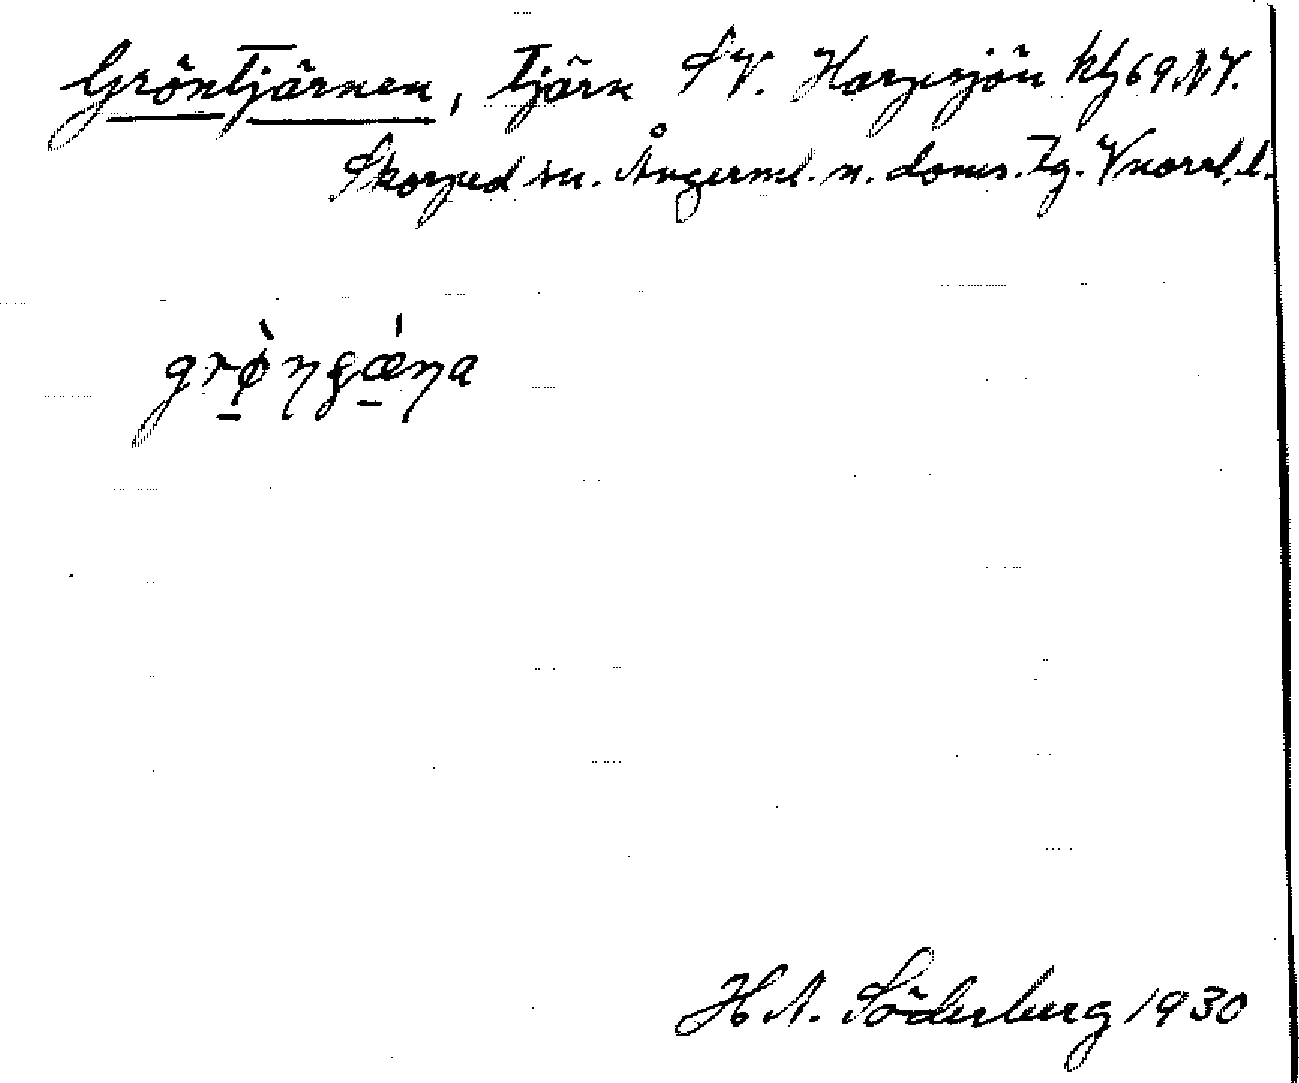 Gröntjärnen, Tjärn SV. Harpesjön kbl 69.NV.
Skorped sn. Ångerml. n. doms. Tg. Vnorrl. l.
grø̀ngǽna
H A. Söderberg 1930